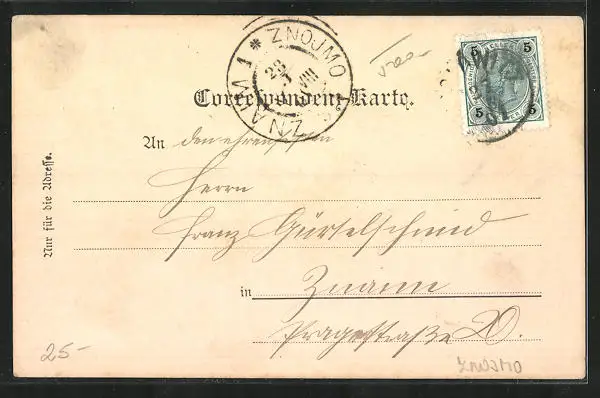 ZNAIM 1 * ZNOJMO
28
VIII
5 5
5 5
Correspondenz-Karte.
An
Herrn
Franz Gürtelschmied
in Znaim
Pragerstraße 20.
Nur für die Adresse.
25-
Znojmo